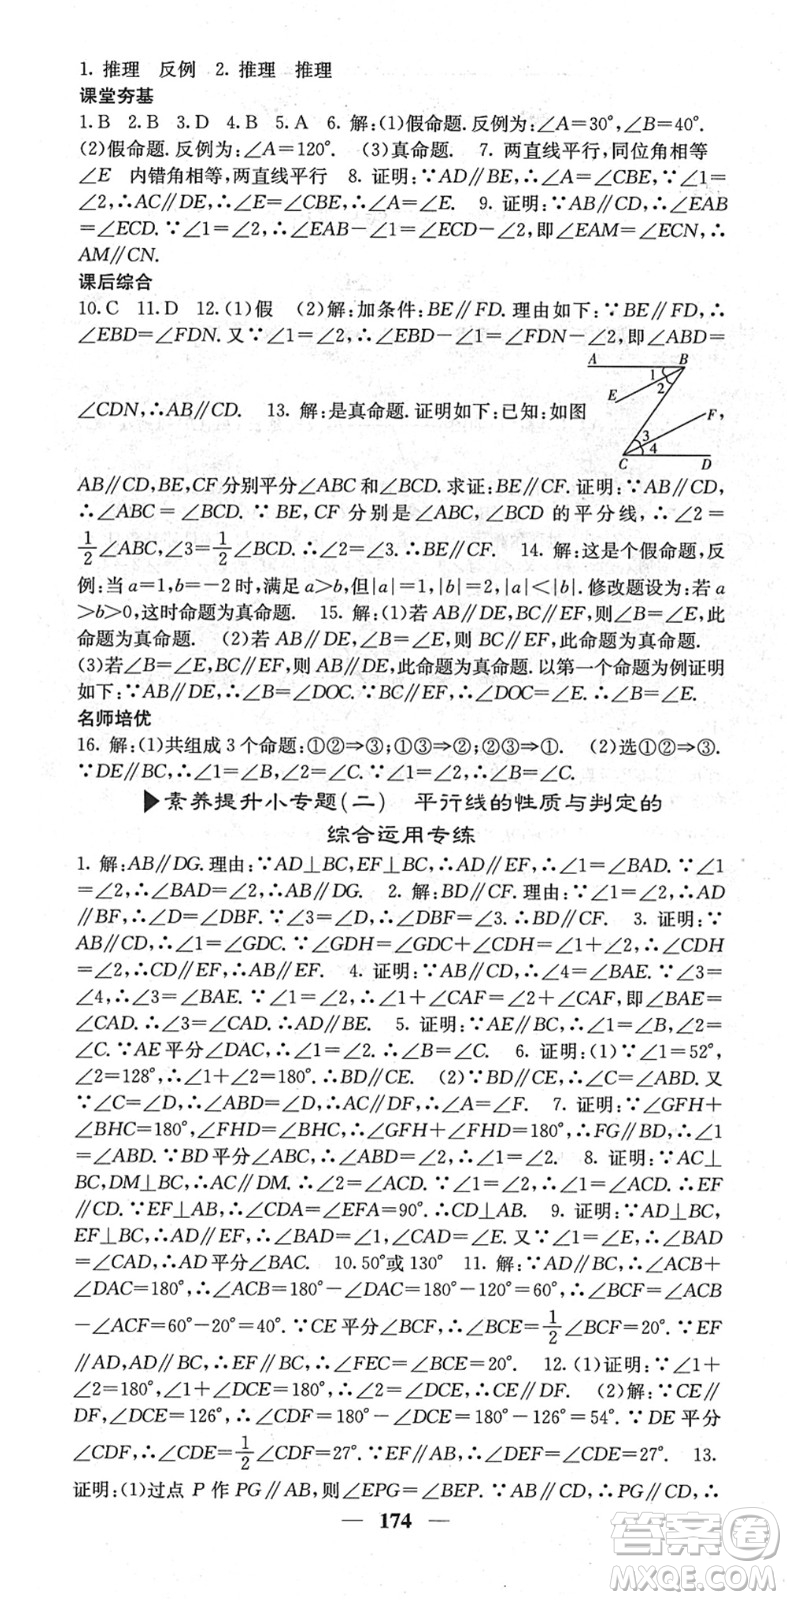 1. 推理　反例　2. 推理　推理
课堂夯基
1. B　2. B　3. D　4. B　5. A　6. 解:(1)假命题.反例为:∠A=30°,∠B=40°.
(2)假命题.反例为:∠A=120°.　(3)真命题.　7. 两直线平行,同位角相等
∠E　内错角相等,两直线平行　8. 证明:∵AD∥BE,∴∠A=∠CBE,∵∠1=
∠2,∴AC∥DE,∴∠E=∠CBE,∴∠A=∠E.　9. 证明:∵AB∥CD,∴∠EAB
=∠ECD.∵∠1=∠2,∴∠EAB-∠1=∠ECD-∠2,即∠EAM=∠ECN,∴
AM∥CN.
课后综合
10. C　11. D　12. (1)假　(2)解:加条件:BE∥FD.理由如下:∵BE∥FD,∴
∠EBD=∠FDN.又∵∠1=∠2,∴∠EBD-∠1=∠FDN-∠2,即∠ABD=
A B 1 2 E F 3 4 C D
∠CDN,∴AB∥CD.　13. 解:是真命题.证明如下:已知:如图,
AB∥CD,BE,CF分别平分∠ABC和∠BCD.求证:BE∥CF.证明:∵AB∥CD,
∴∠ABC=∠BCD.∵BE,CF分别是∠ABC,∠BCD的平分线,∴∠2=
1/2∠ABC,∠3=1/2∠BCD.∴∠2=∠3.∴BE∥CF.　14. 解:这是个假命题,反
例:当a=1,b=-2时,满足a>b,但|a|=1,|b|=2,|a|<|b|.修改题设为:若a
>b>0,这时命题为真命题.　15. 解:(1)若AB∥DE,BC∥EF,则∠B=∠E,此
命题为真命题.　(2)若AB∥DE,∠B=∠E,则BC∥EF,此命题为真命题.
(3)若∠B=∠E,BC∥EF,则AB∥DE,此命题为真命题.以第一个命题为例证明
如下:∵AB∥DE,∴∠B=∠DOC.∵BC∥EF,∴∠DOC=∠E,∴∠B=∠E.
名师培优
16. 解:(1)共组成3个命题:①②⇒③;①③⇒②;②③⇒①.　(2)选①②⇒③.
∵DE∥BC,∴∠1=∠B,∠2=∠C.∵∠1=∠2,∴∠B=∠C.
▶素养提升小专题(二)　平行线的性质与判定的
综合运用专练
1. 解:AB∥DG.理由:∵AD⊥BC,EF⊥BC,∴AD∥EF,∴∠1=∠BAD.∵∠1
=∠2,∴∠BAD=∠2,∴AB∥DG.　2. 解:BD∥CF.理由:∵∠1=∠2,∴AD
∥BF,∴∠D=∠DBF.∵∠3=∠D,∴∠DBF=∠3.∴BD∥CF.　3. 证明:∵
AB∥CD,∴∠1=∠GDC.∵∠GDH=∠GDC+∠CDH=∠1+∠2,∴∠CDH
=∠2,∴CD∥EF,∴AB∥EF.　4. 证明:∵AB∥CD,∴∠4=∠BAE.∵∠3=
∠4,∴∠3=∠BAE.∵∠1=∠2,∴∠1+∠CAF=∠2+∠CAF,即∠BAE=
∠CAD.∴∠3=∠CAD.∴AD∥BE.　5. 证明:∵AE∥BC,∴∠1=∠B,∠2=
∠C.∵AE平分∠DAC,∴∠1=∠2.∴∠B=∠C.　6. 证明:(1)∵∠1=52°,
∠2=128°,∴∠1+∠2=180°.∴BD∥CE.　(2)∵BD∥CE,∴∠C=∠ABD.又
∵∠C=∠D,∴∠ABD=∠D,∴AC∥DF,∴∠A=∠F.　7. 证明:∵∠GFH+
∠BHC=180°,∠FHD=∠BHC,∴∠GFH+∠FHD=180°,∴FG∥BD,∴∠1
=∠ABD.∵BD平分∠ABC,∴∠2=∠ABD,∴∠1=∠2.　8. 证明:∵AC⊥
BC,DM⊥BC,∴AC∥DM.∴∠2=∠ACD.∵∠1=∠2,∴∠1=∠ACD.∴EF
∥CD.∵EF⊥AB,∴∠CDA=∠EFA=90°.∴CD⊥AB.　9. 证明:∵AD⊥BC,
EF⊥BC,∴AD∥EF,∴∠BAD=∠1,∠CAD=∠E.又∵∠1=∠E,∴∠BAD=
∠CAD,∴AD平分∠BAC.　10. 50°或130°　11. 解:∵AD∥BC,∴∠ACB+
∠DAC=180°,∴∠ACB=180°-∠DAC=180°-120°=60°,∴∠BCF=∠ACB
-∠ACF=60°-20°=40°.∵CE平分∠BCF,∴∠BCE=1/2∠BCF=20°.∵EF
∥AD,AD∥BC,∴EF∥BC,∴∠FEC=∠BCE=20°.　12. (1)证明:∵∠1+
∠2=180°,∠1+∠DCE=180°,∴∠2=∠DCE.∴CE∥DF.　(2)解:∵CE∥
DF,∠DCE=126°,∴∠CDF=180°-∠DCE=180°-126°=54°.∵DE平分
∠CDF,∴∠CDE=1/2∠CDF=27°.∵EF∥AB,∴∠DEF=∠CDE=27°.　13.
证明:(1)过点P作PG∥AB,则∠EPG=∠BEP.∵AB∥CD,∴PG∥CD,∴
— 174 —
答案圈
MXQE.COM